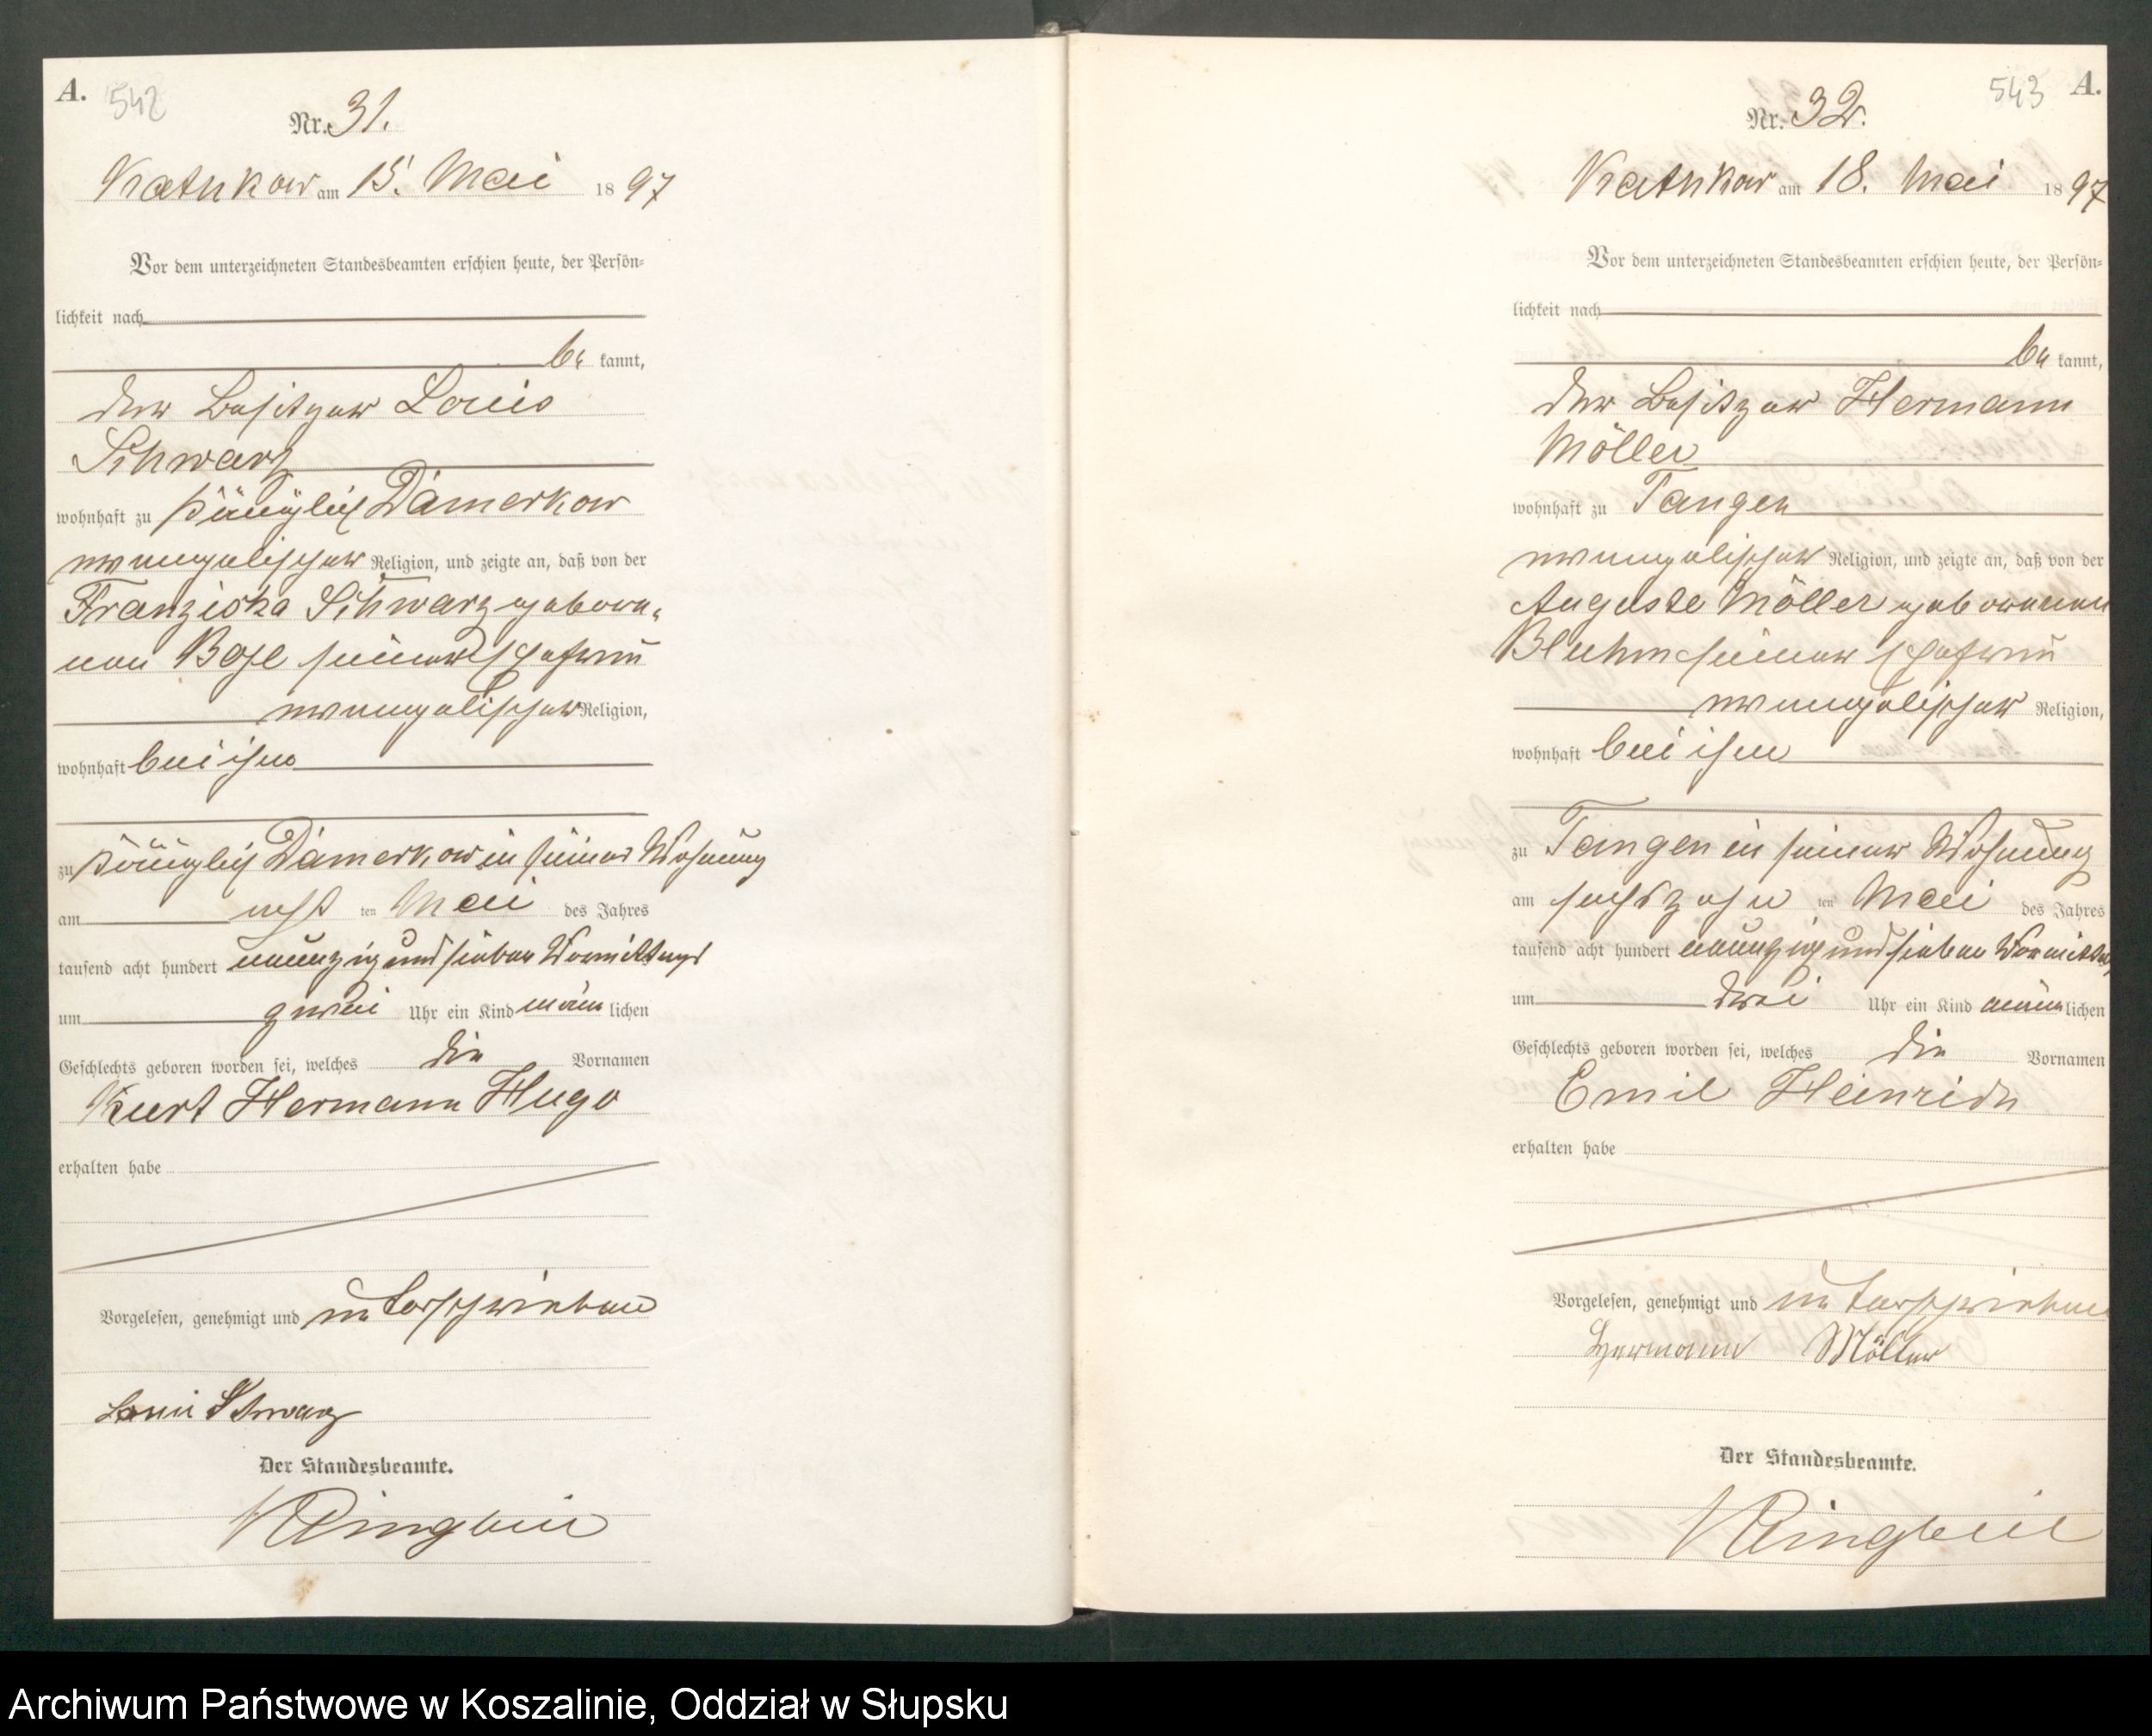 A.
542
Nr. 31.
Kathkow am 15. Mai 1897
Vor dem unterzeichneten Standesbeamten erschien heute, der Persön-
lichkeit nach
be kannt,
der Besitzer Louis
Schwarz
wohnhaft zu Königlich Damerkow
evangelischer Religion, und zeigte an, daß von der
Franziska Schwarz gebore-
nen Boje seiner Ehefrau
evangelischer Religion,
wohnhaft bei ihm
zu Königlich Damerkow in seiner Wohnung
am acht ten Mai des Jahres
tausend acht hundert neunzig und sieben Vormittags
um zwei Uhr ein Kind männ lichen
Geschlechts geboren worden sei, welches die Vornamen
Kurt Hermann Hugo
erhalten habe
Vorgelesen, genehmigt und unterschrieben
Louis Schwarz
Der Standesbeamte.
Klingbeil
543
A.
Nr. 32.
Kathkow am 18. Mai 1897
Vor dem unterzeichneten Standesbeamten erschien heute, der Persön-
lichkeit nach
be kannt,
der Besitzer Hermann
Möller
wohnhaft zu Tangen
evangelischer Religion, und zeigte an, daß von der
Auguste Möller geborenen
Bluhm seiner Ehefrau
evangelischer Religion,
wohnhaft bei ihm
zu Tangen in seiner Wohnung
am sechszehn ten Mai des Jahres
tausend acht hundert neunzig und sieben Vormittags
um drei Uhr ein Kind männ lichen
Geschlechts geboren worden sei, welches die Vornamen
Emil Heinrich
erhalten habe
Vorgelesen, genehmigt und unterschrieben
Hermann Möller
Der Standesbeamte.
Klingbeil
Archiwum Państwowe w Koszalinie, Oddział w Słupsku